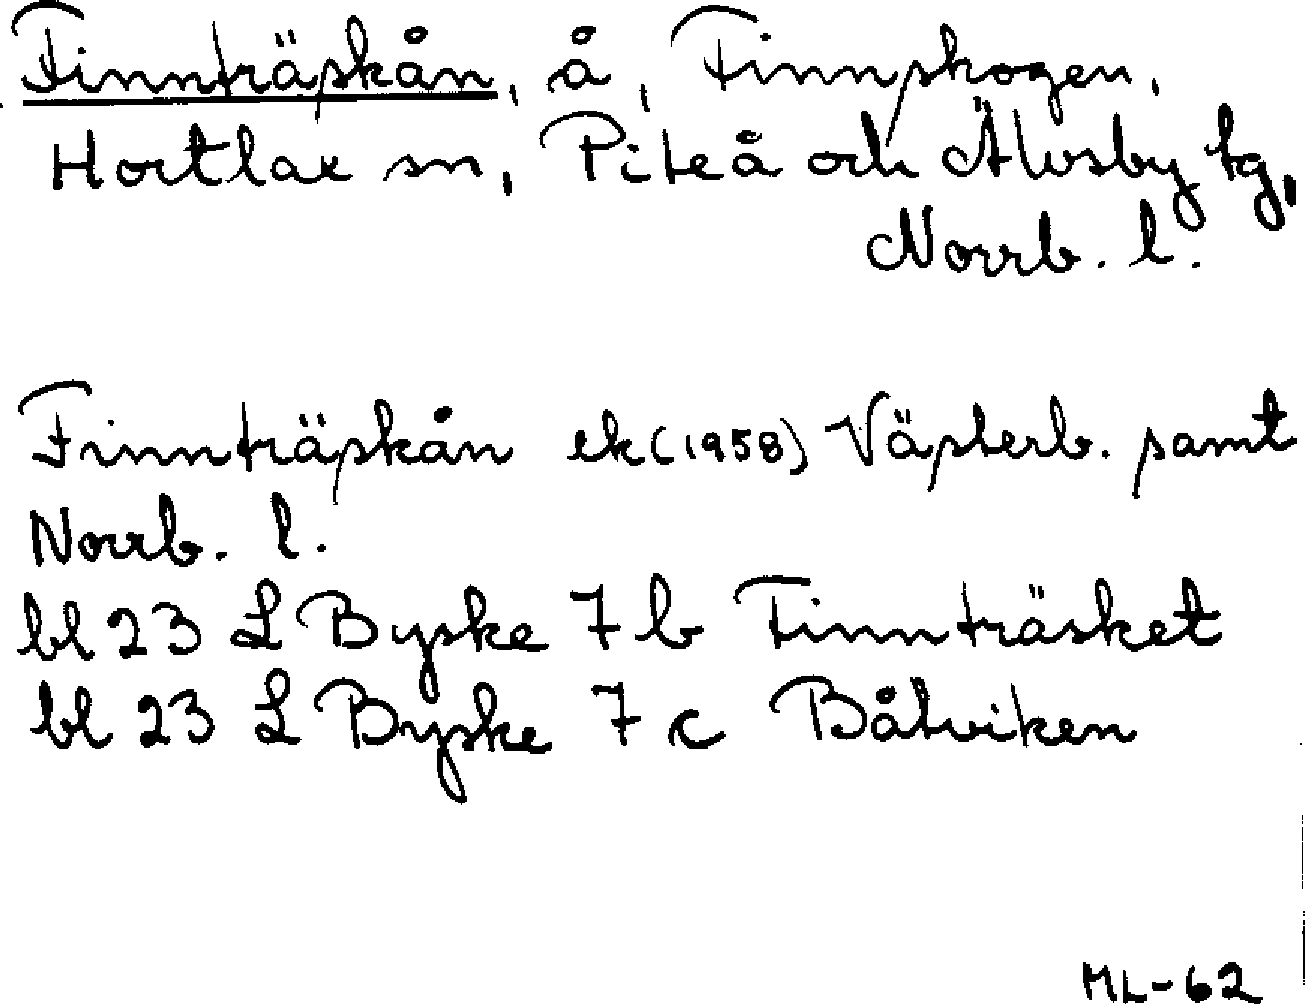 Finnträskån, å, Finnskogen,
Hortlax sn, Piteå och Älvsby tg,
Norrb. l.
Finnträskån ek (1958) Västerb. samt
Norrb. l.
bl 23 L Byske 7 b Finnträsket
bl 23 L Byske 7 c Båtviken
ML-62